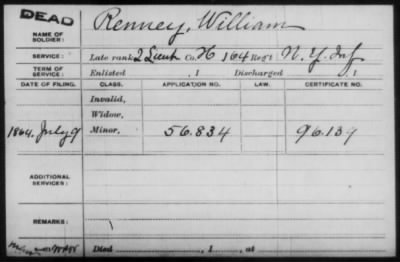 DEAD
NAME OF SOLDIER: Renney, William
SERVICE: Late rank 2 Lieut Co. H 164 Reg't N.Y. Inf
TERM OF SERVICE: Enlisted , 1 Discharged , 1
DATE OF FILING. CLASS. APPLICATION NO. LAW. CERTIFICATE NO.
Invalid,
Widow,
1864, July 9 Minor, 56.834 96.139
ADDITIONAL SERVICES:
REMARKS:
Died , 1 , at